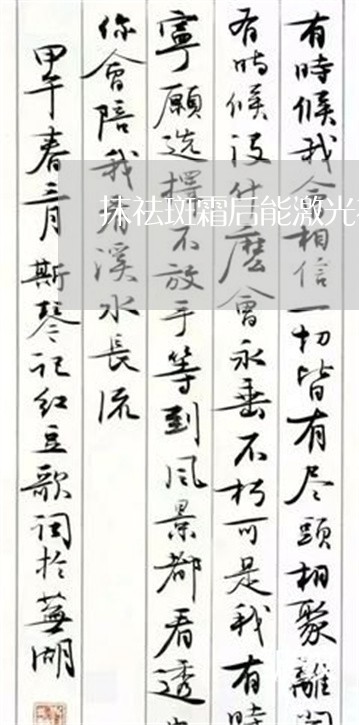 有時候我会相信一切皆有尽頭相聚離開
有時候没什麼會永垂不朽可是我有時
寧願选擇不放手等到风景都看透
你會陪我看溪水長流
甲午春三月斯琴记红豆歌词於蕪湖
抹祛斑霜后能激光